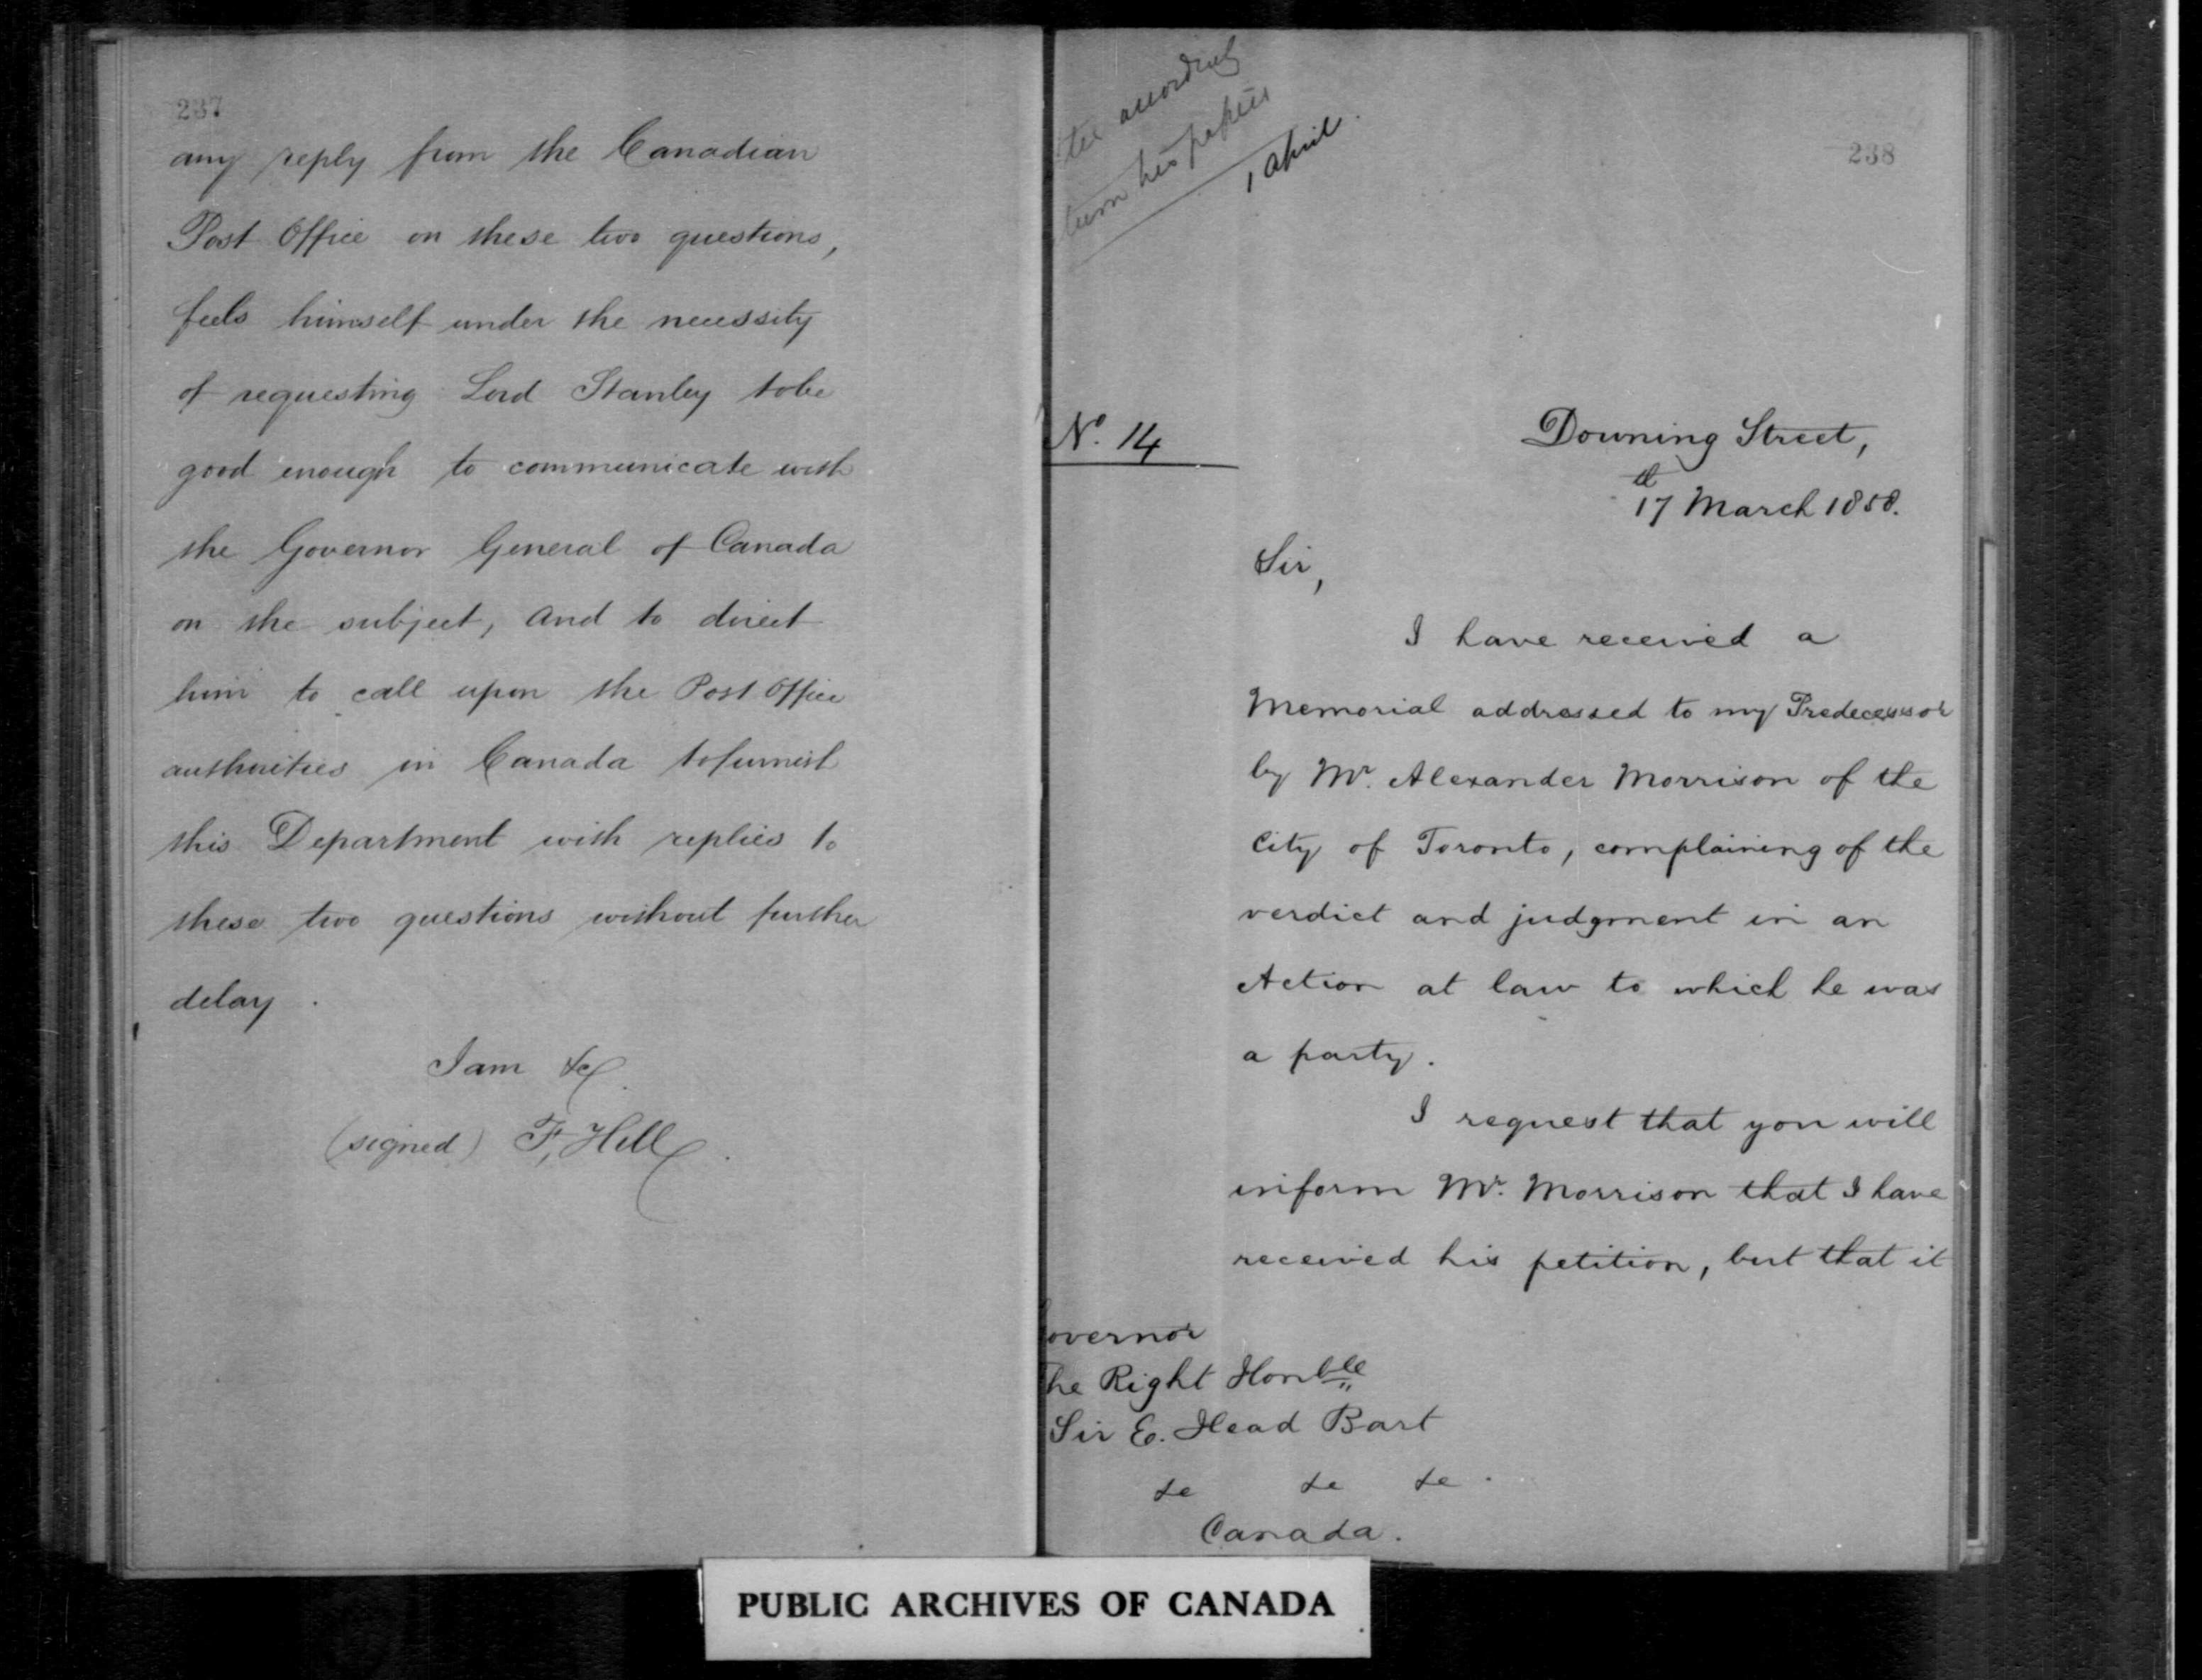 237
any reply from the Canadian
Post Office on these two questions,
feels himself under the necessity
of requesting Lord Stanley to be
good enough to communicate with
the Governor General of Canada
on the subject, and to direct
him to call upon the Post Office
authorities in Canada to furnish
this Department with replies to
these two questions without further
delay.
I am &c.
(signed) F, Hill.
his papers
1 April.
238
No. 14
Downing Street,
17th March 1858.
Sir,
I have received a
Memorial addressed to my Predecessor
by Mr. Alexander Morrison of the
City of Toronto, complaining of the
verdict and judgment in an
Action at law to which he was
a party.
I request that you will
inform Mr. Morrison that I have
received his petition, but that it
Governor
The Right Honble
Sir E. Head Bart
&c &c &c.
Canada.
PUBLIC ARCHIVES OF CANADA